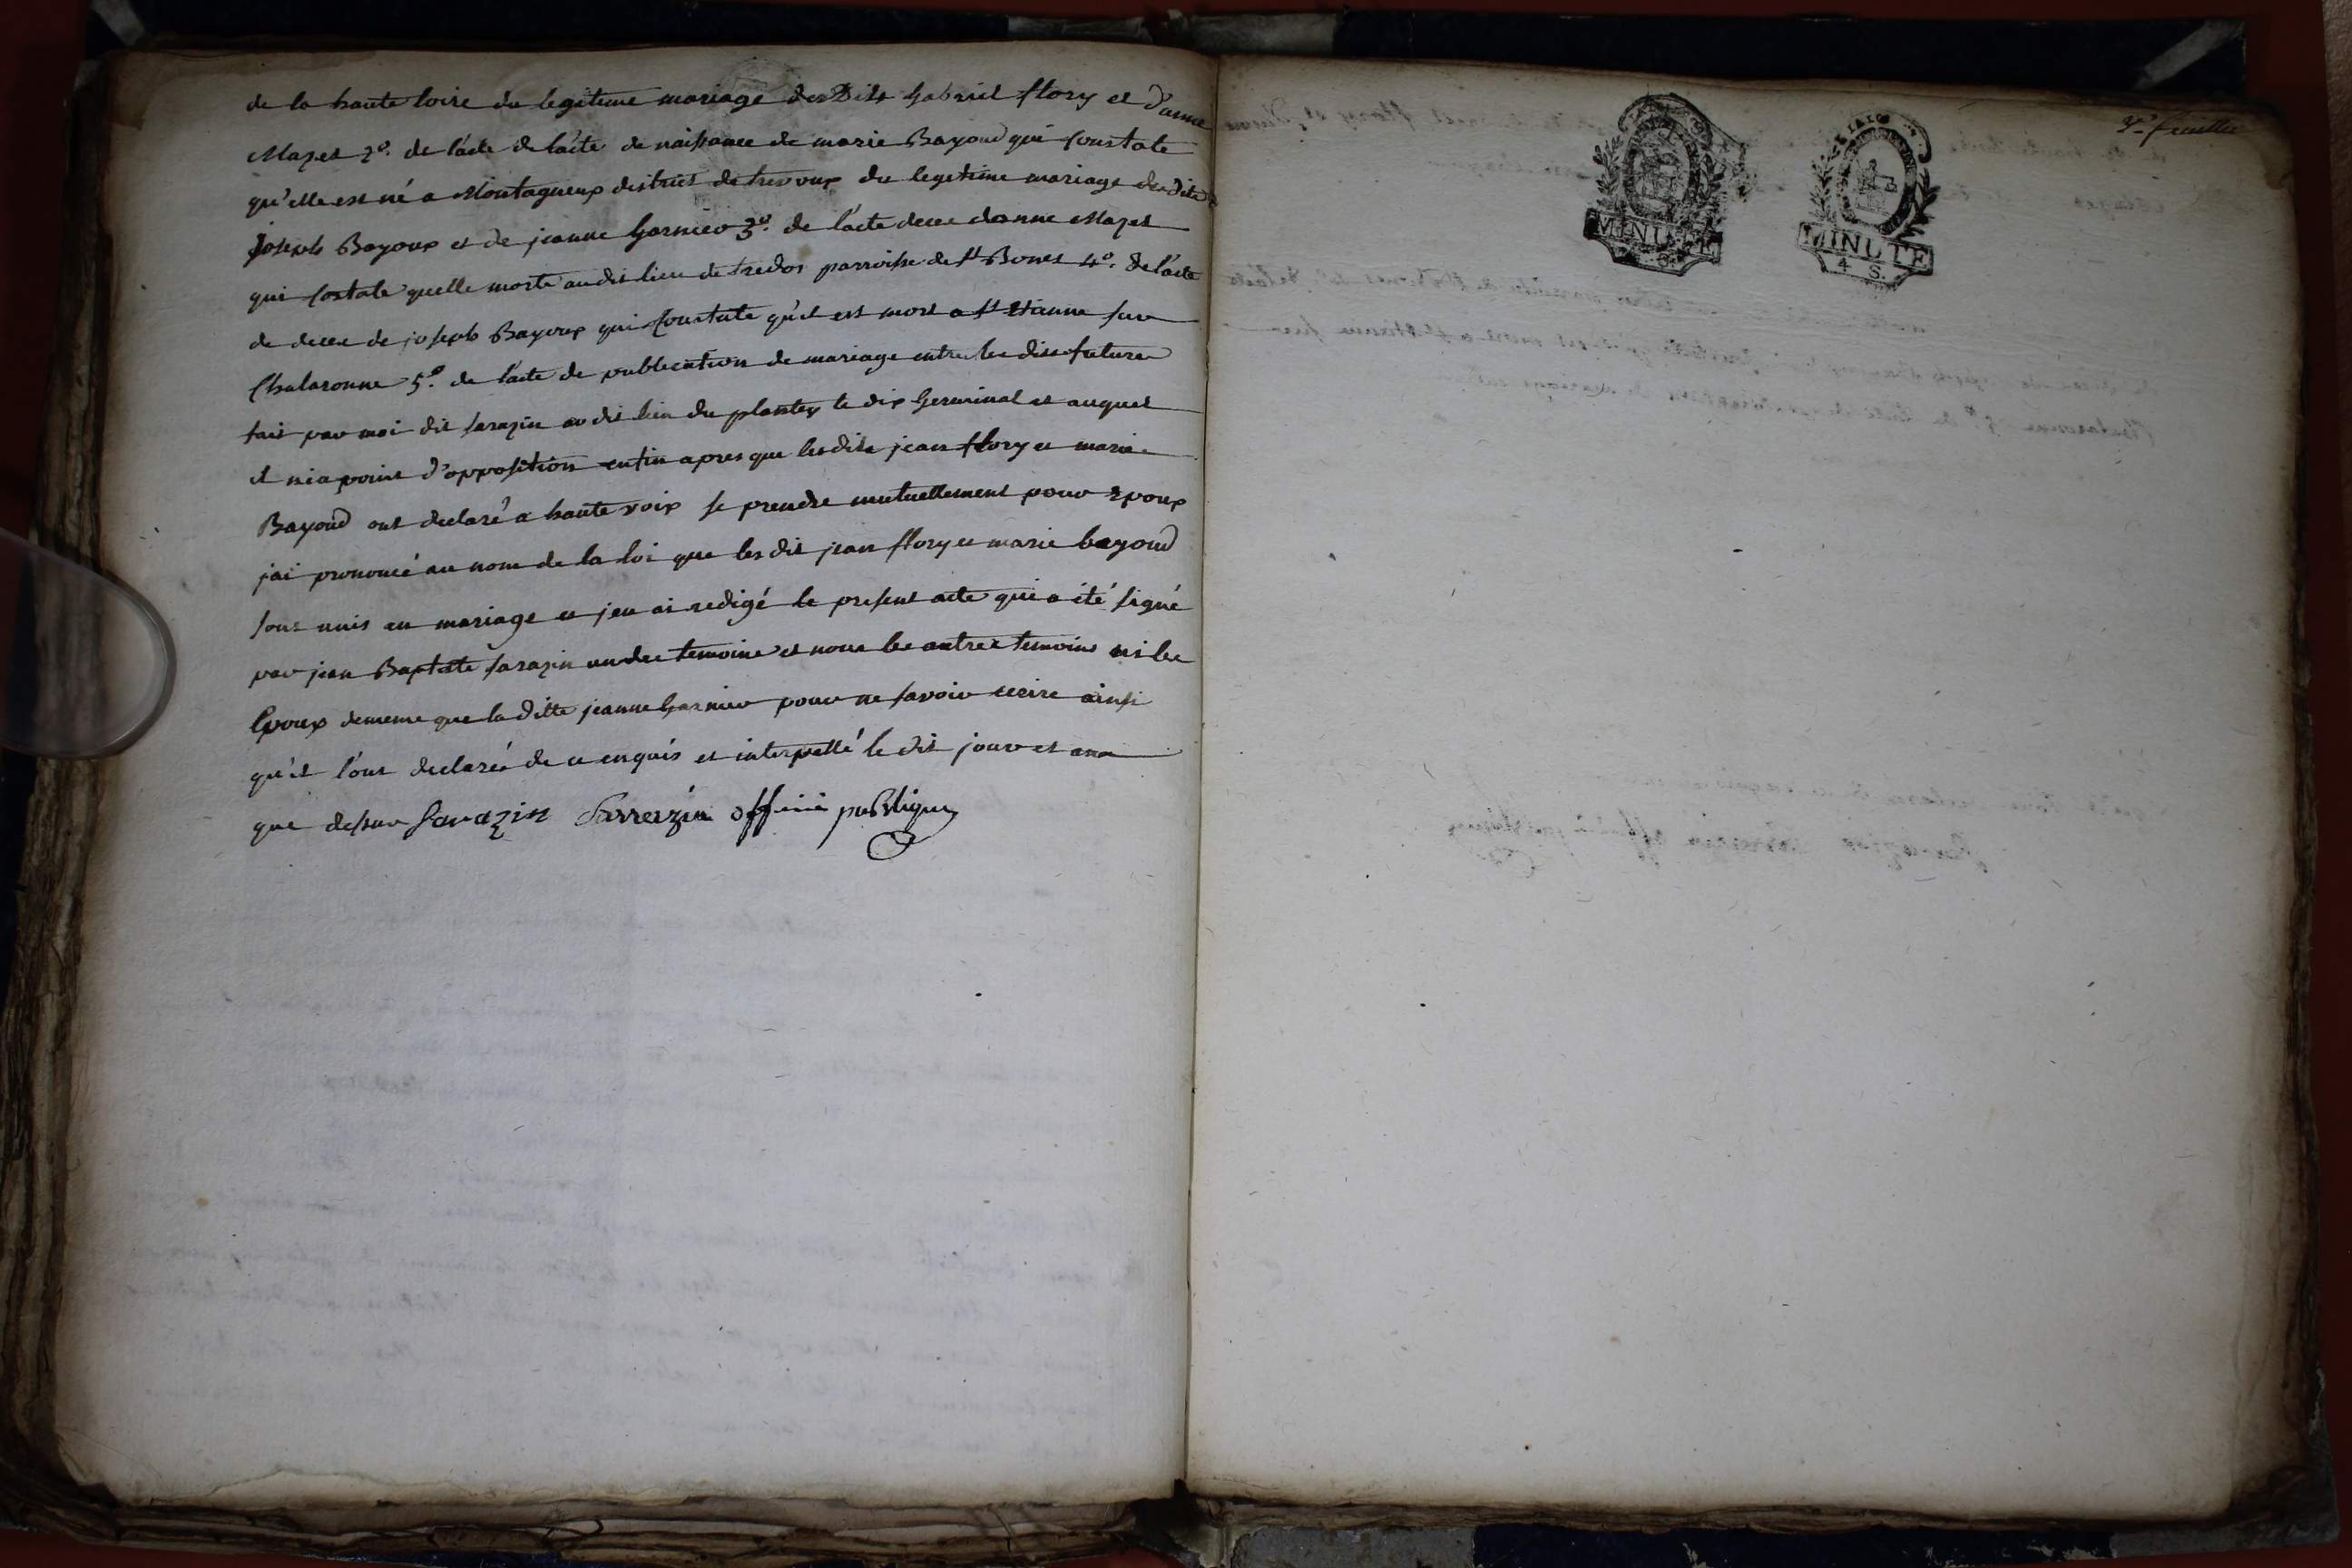 de la haute loire du legitime mariage des Dits gabriel flory et d'anne
Mazet 2º. de l'acte de l'acte de naissance de marie Bayoud qui constate
qu'elle est né a Montagneux district de trevoux du legetime mariage desdits
joseph Bayoux et de jeanne garnier 3º. de l'acte decee danne Mazet
qui costate quelle morte audit lieu de tredos parroisse de st Bonet 4º. de l'acte
de decee de joseph Bayoux qui constate qu'il est mort a st Etienne sur
Chalaronne 5º. de l'acte de publication de mariage entre les dits futures
fait par moi dit sarazin au dit lieu du plantey le dix Germinal et auquel
il nia point d'opposition enfin apres que lesdits jean flory et marie
Bayoud ont declaré a haute voix se prendre mutuellement pour Epoux
jai prononcé au nom de la loi que les dit jean flory et marie bayoud
sont unis en mariage et jen ai redigé le present acte qui a été signé
par jean Baptiste sarazin un des temoins et nom les autres temoins ni les
Epoux dememe que la ditte jeanne garnier pour ne savoir ecrire ainsi
qu'il l'ont declarée de ce enquis et interpellé le dit jour et an
que dessur Sarazin Sarrerzin officié publique
3e feuillet
MINUTE
MINUTE
4 S.